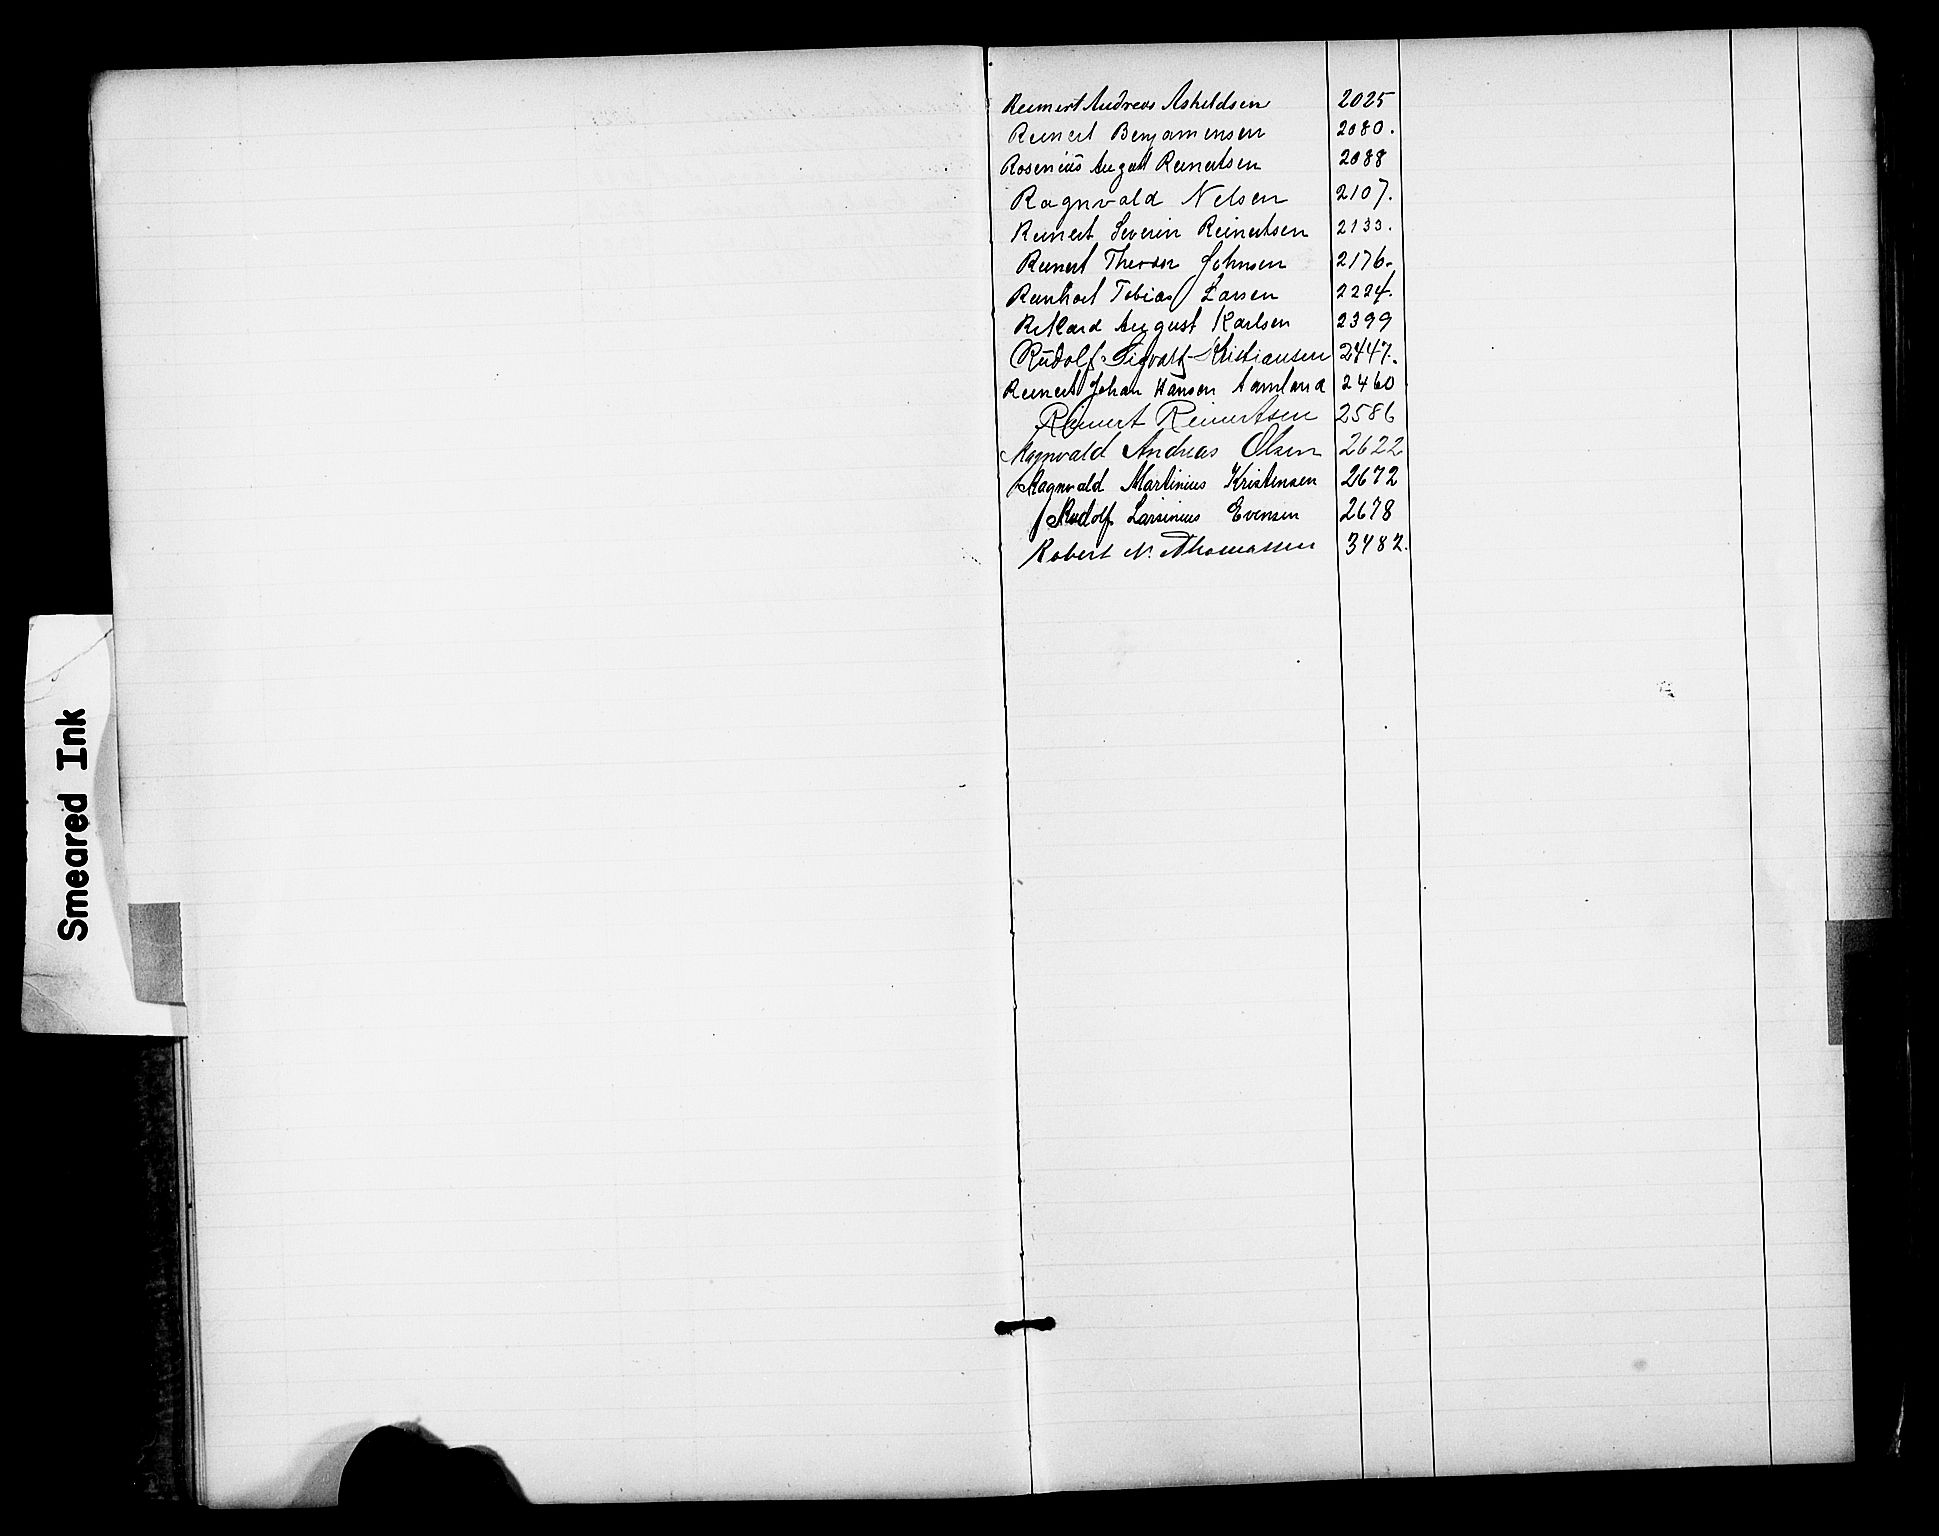 Smeared Ink
Reinert Andreas Askeldsen 2025
Reinert Benjaminsen 2080.
Rosenius August Reinertsen 2088
Ragnvald Nelsen 2107.
Reinert Severin Reinertsen 2133.
Reinert Theodor Johnsen 2176.
Reinhart Tobias Larsen 2224.
Rikard August Karlsen 2399
Rudolf Sigvart Kristiansen 2447.
Reinert Johan Hansen Aamland 2460
Reinert Reinertsen 2586
Ragnvald Andreas Olsen 2622
Ragnvald Martinius Kristensen 2672
Rudolf Larsinius Evensen 2678
Robert N. Thomassen 3482.